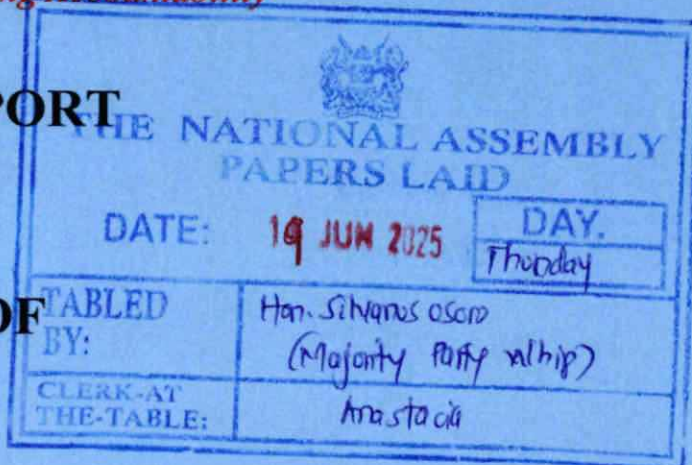 PORT
THE NATIONAL ASSEMBLY
PAPERS LAID
DATE: 19 JUN 2025
DAY.
Thursday
OF
TABLED
BY:
Hon. Silvanus Osoro
(Majority Party Whip)
CLERK-AT
THE-TABLE:
Anastacia